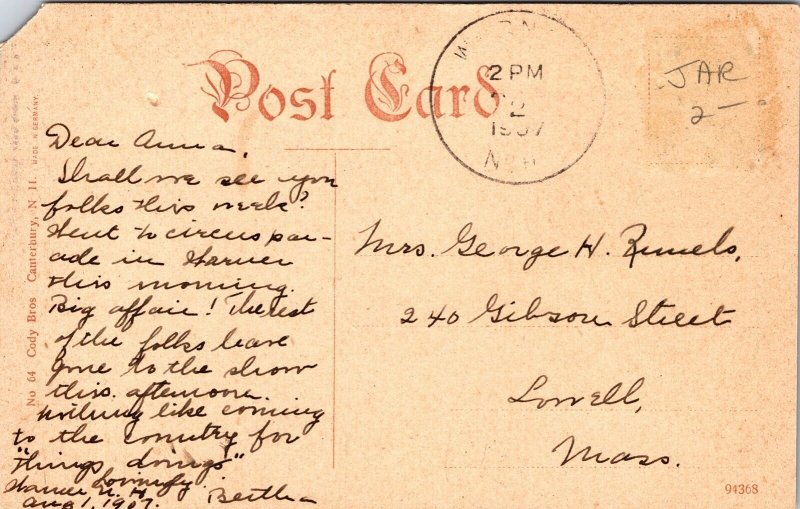 Post Card
2 PM
2
1907
N.H.
JAR
2-
MADE IN GERMANY
No 64 Cody Bros Canterbury, N H.
Dear Anna,
Shall we see you
folks this week?
Went to circus par-
ade in Warner
this morning.
Big affair! The rest
of the folks have
gone to the show
this afternoon.
Nothing like coming
to the country for
"things doings"
Lovingly
Bertha
Warner N. H.
Aug 1, 1907.
Mrs. George H. Runels,
240 Gibson Street
Lowell,
Mass.
94368